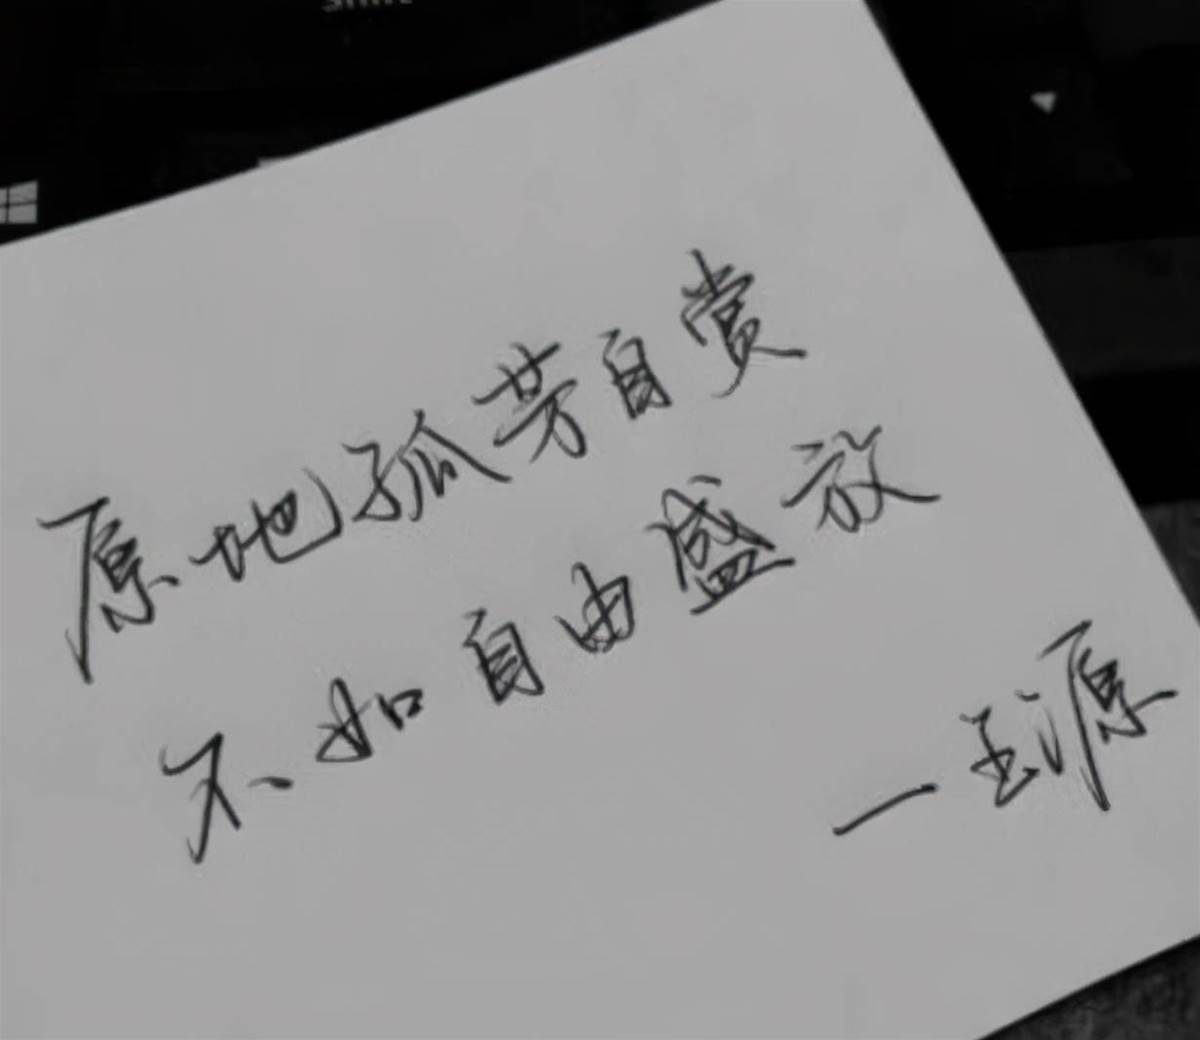 原地孤芳自赏
不如自由盛放
—王源